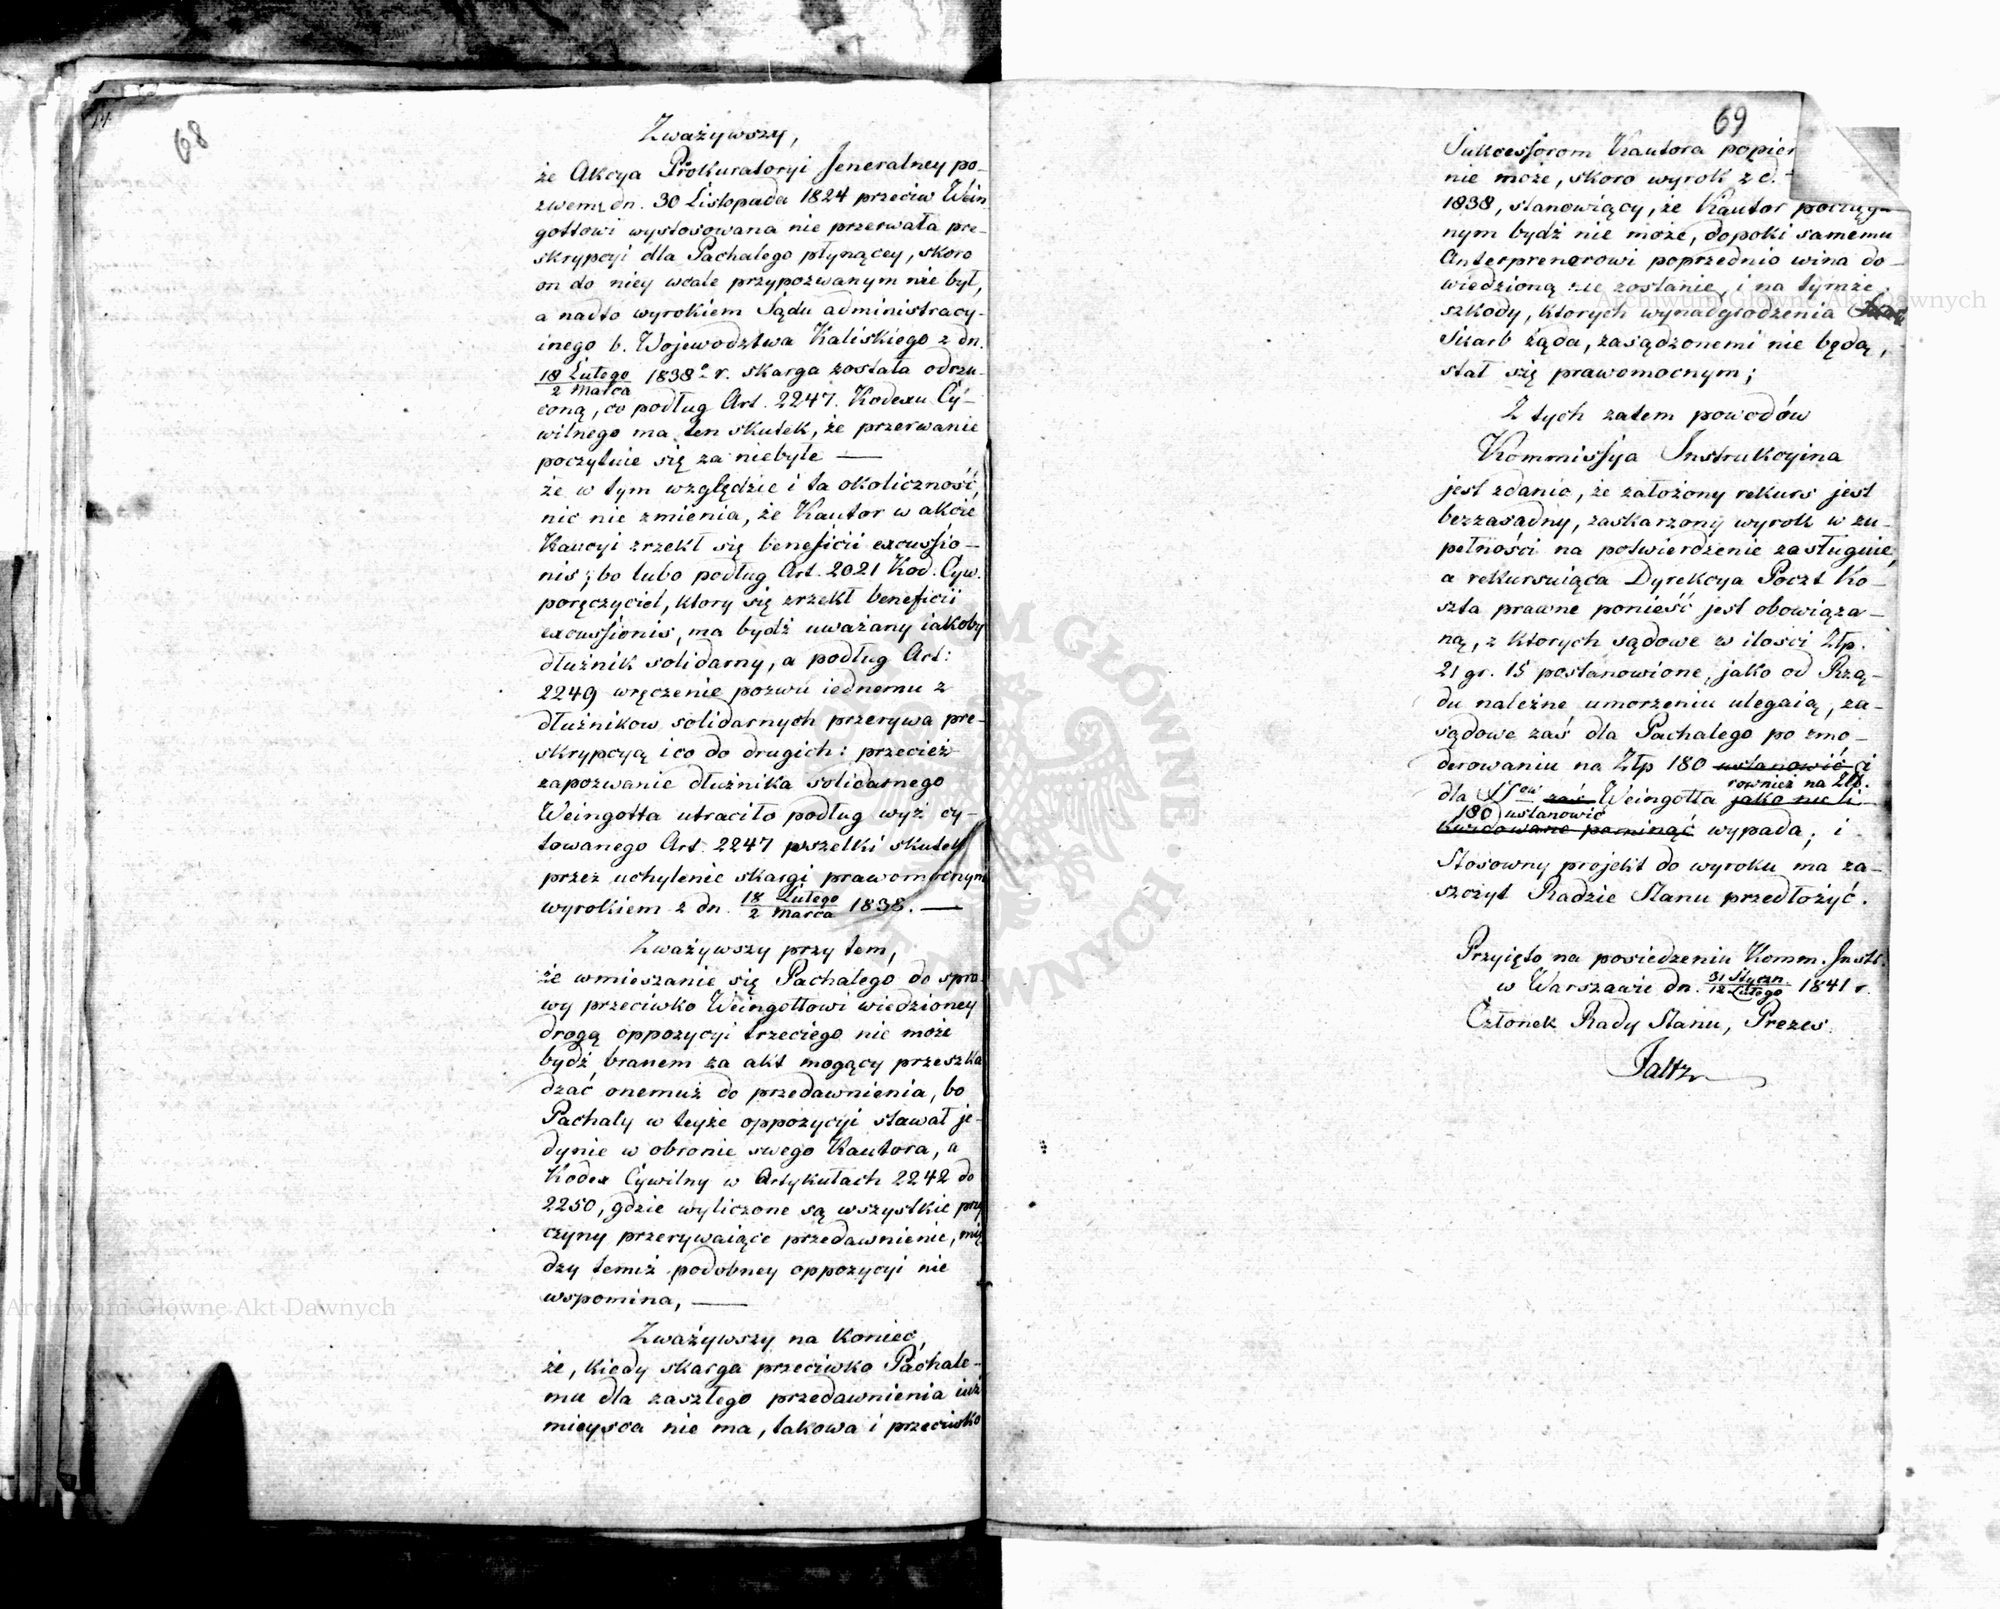 68
Zważywszy,
że Akcya Prokuratoryi Jeneralney po-
zwem dn. 30 Listopada 1824 przeciw Wein-
gottowi wystosowana nie przerwała pre-
skrypcyi dla Pachalego płynącey, skoro
on do niey wcale przypozwanym nie był,
a nadto wyrokiem Sądu administracy-
inego b. Województwa Kaliskiego z dn.
18 Lutego / 2 Marca 1838o r. skarga została odrzu-
coną, co podług Art. 2247. Kodexu Cy-
wilnego ma ten skutek, że przerwanie
poczytuie się za niebyłe —
że w tym względzie i ta okoliczność,
nic nie zmienia, że Kautor w akcie
Kaucyi zrzekł się beneficii excussio-
nis; bo lubo podług Art. 2021 Kod. Cyw.
poręczyciel, ktory się zrzekł beneficii
excussionis, ma bydź uważany iakoby
dłużnik solidarny, a podług Art:
2249 wręczenie pozwu iednemu z
dłużnikow solidarnych przerywa pre-
skrypcyą i co do drugich: przecież
zapozwanie dłużnika solidarnego
Weingotta utraciło podług wyż cy-
towanego Art. 2247 wszelki skutek
przez uchylenie skargi prawomocnym
wyrokiem z dn. 18 Lutego / 2 Marca 1838. —
Zważywszy przy tem,
że wmieszanie się Pachalego do spra-
wy przeciwko Weingottowi wiedzioney
drogą oppozycyi trzeciego nie może
bydź branem za akt mogący przeszka
dzać onemuż do przedawnienia, bo
Pachaly w teyże oppozycyi stawał je-
dynie w obronie swego Kautora, a
Kodex Cywilny w Artykułach 2242 do
2250, gdzie wyliczone są wszystkie przy
czyny przerywaiące przedawnienie, mię
dzy temiż podobney oppozycyi nie
wspomina, —
Zważywszy na koniec,
że, kiedy skarga przeciwko Pachale-
mu dla zaszłego przedawnienia iuż
mieysca nie ma, takowa i przeciwko
69
Sukcessorom Kautora popier
nie może, skoro wyrok z d.
1838, stanowiący, że Kautor pociągn
nym bydź nie może, dopoki samemu
Anterprenerowi poprzednio wina do-
wiedzioną nie zostanie, i na tymże
szkody, ktorych wynadgrodzenia
Skarb żąda, zasądzonemi nie będą,
stał się prawomocnym;
Z tych zatem powodów
Kommissya Instrukcyina
jest zdania, że założony rekurs jest
bezzasadny, zaskarzony wyrok w zu-
pełności na potwierdzenie zasługuie,
a rekursuiąca Dyrekcya Poczt Ko-
szta prawne ponieść jest obowiąza-
ną, z ktorych sądowe w ilości Złp.
21 gr. 15 postanowione, jako od Rzą-
du należne umorzeniu ulegaią, za-
sądowe zaś dla Pachalego po zmo-
derowaniu na Złp 180 ustanowić a
rownież na Złp.
dla SSow zaś Weingotta jako nieli-
180 ustanowić
kwidowane pominąć wypada; i
Stosowny projekt do wyroku ma za-
szczyt Radzie Stanu przedłożyć.
Przyięto na posiedzeniu Komm. Instr.
w Warszawie dn. 31 Styczn. / 12 Lutego 1841 r.
Członek Rady Stanu, Prezes.
Faltz
Archiwum Główne Akt Dawnych
Archiwum Główne Akt Dawnych